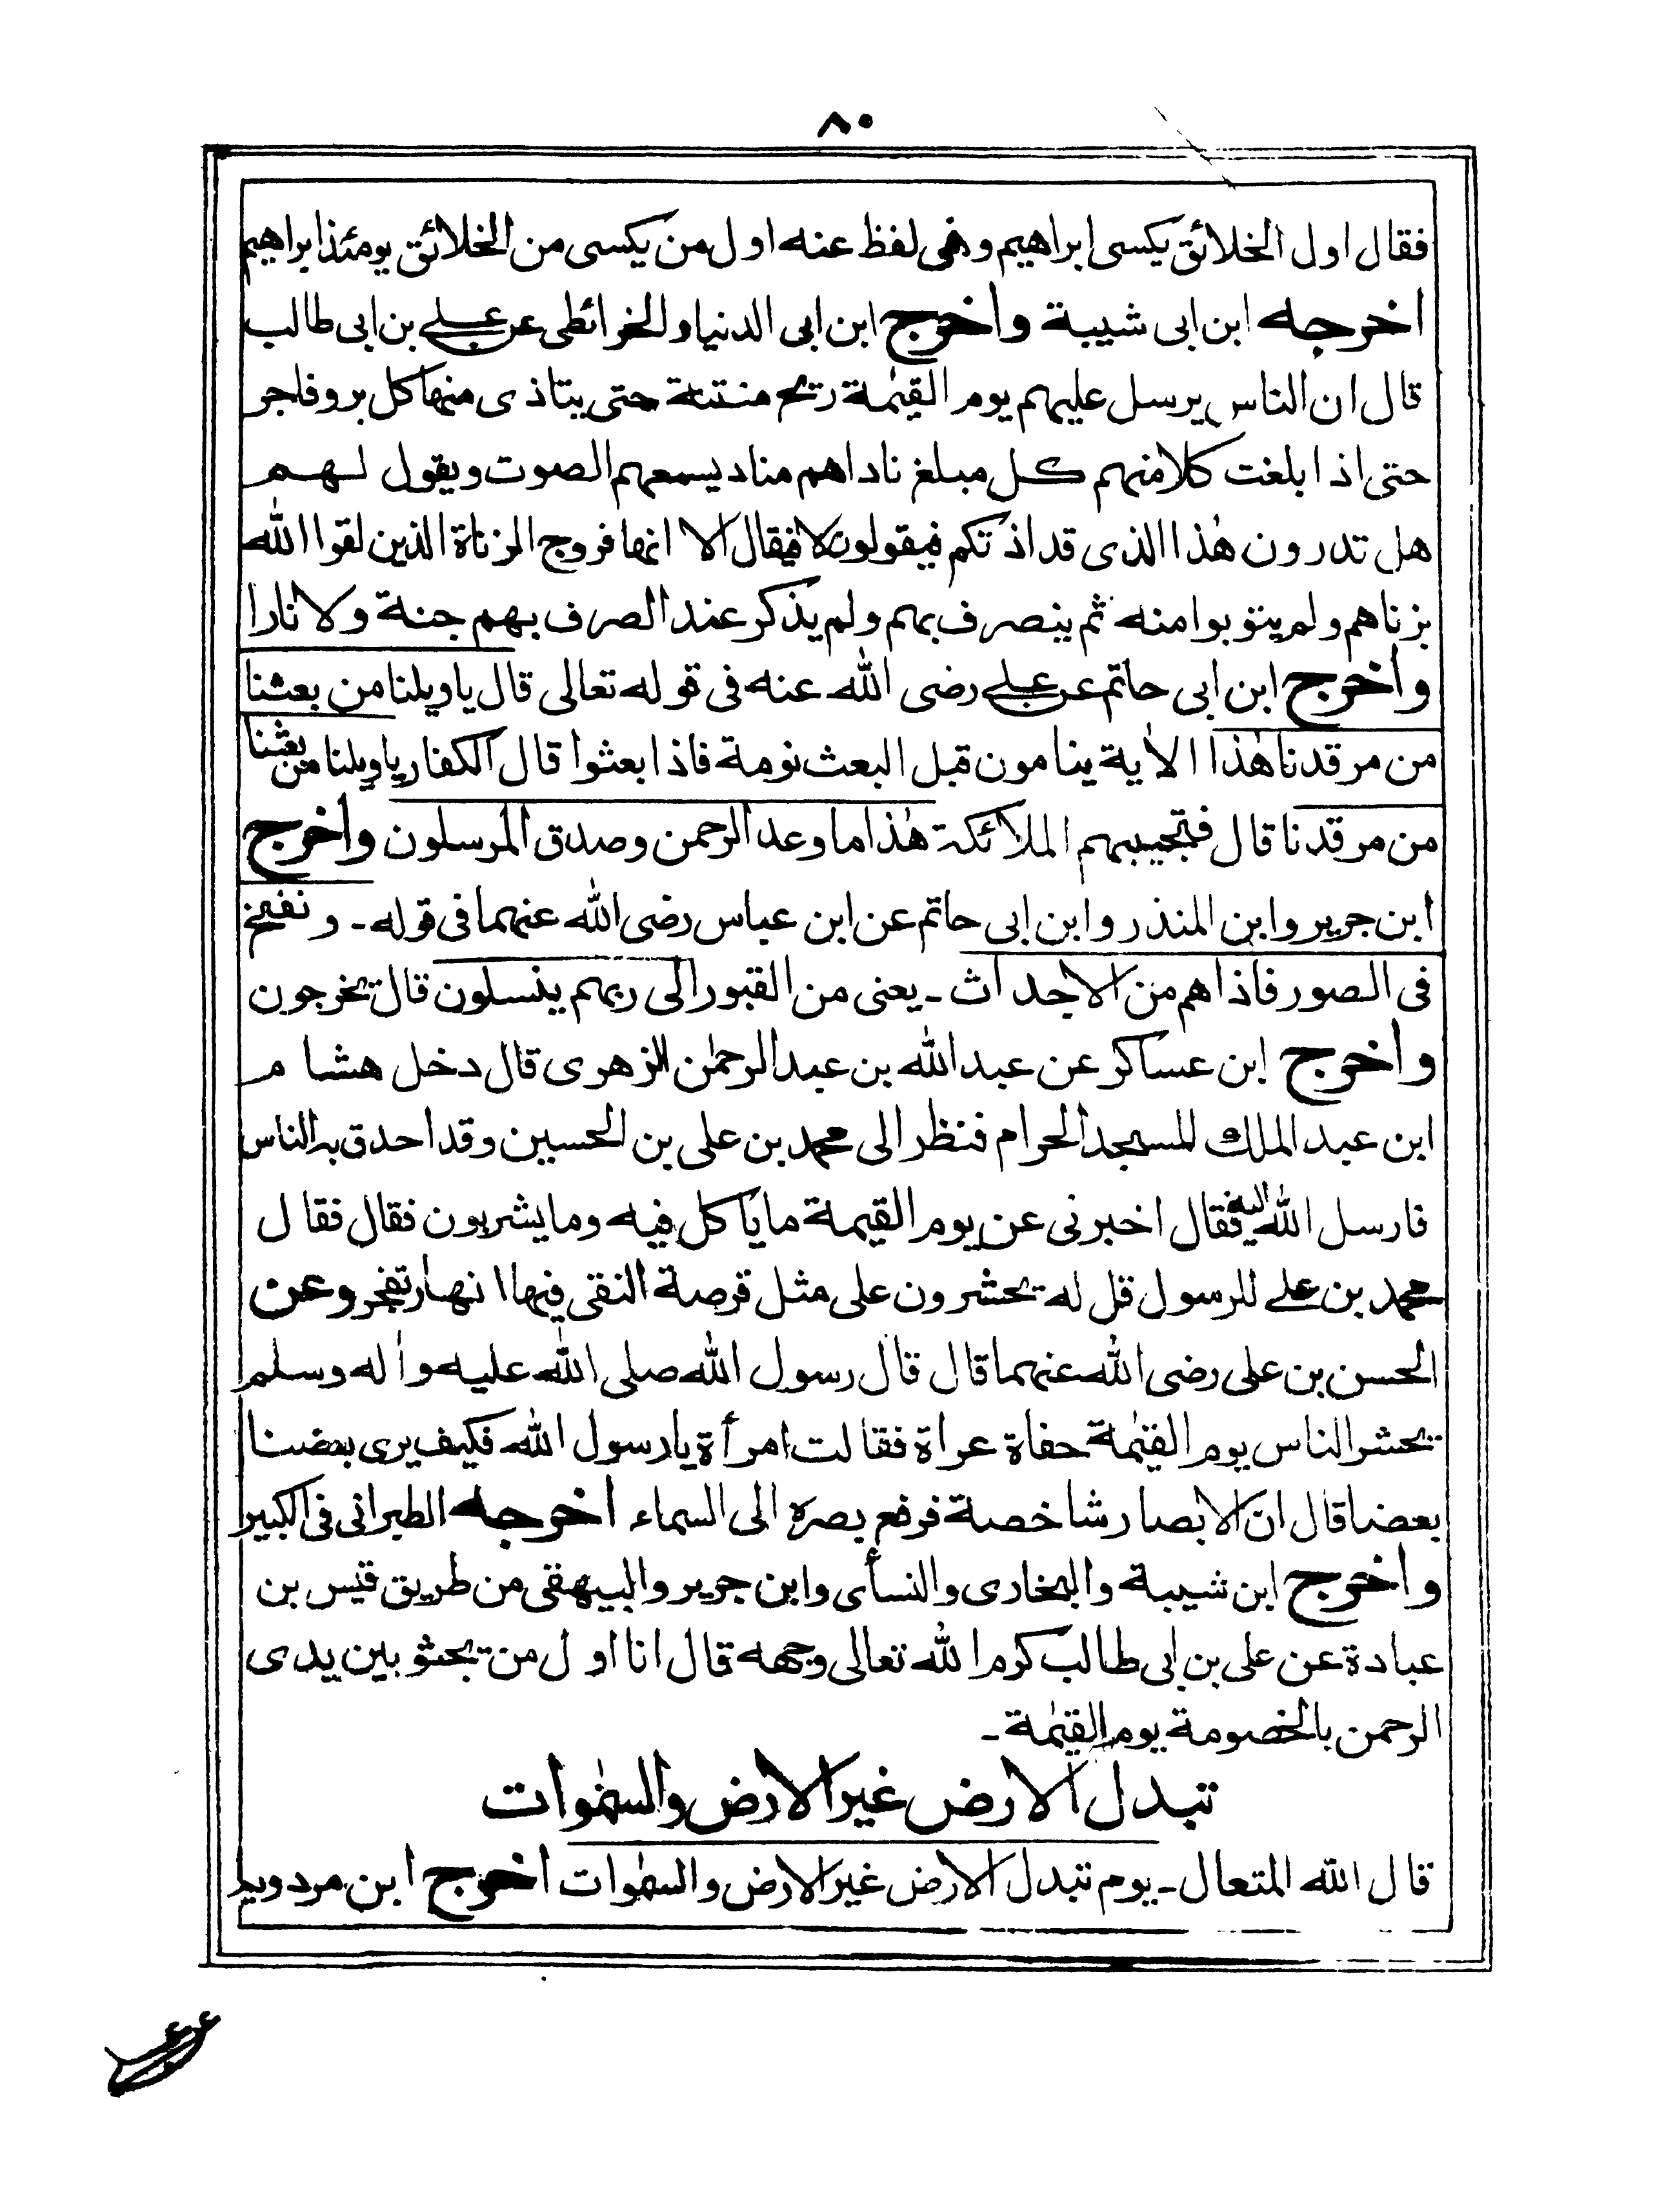 ٨٠
فقال اول الخلائق يكسى ابراهيم وفى لفظ عنه اول من يكسى من الخلائق يومئذ ابراهيم
اخرجه ابن ابى شيبة واخرج ابن ابى الدنيا والخرائطى عن على بن ابى طالب
قال ان الناس يرسل عليهم يوم القيٰمة ريح منتنة حتى يتاذى منها كل بر وفاجر
حتى اذا بلغت كلا منهم كل مبلغ ناداهم مناد يسمعهم الصوت ويقول لهم
هل تدرون هٰذا الذى قد اذتكم فيقولون لا فيقال الا انها فروج الزناة الذين لقوا الله
بزناهم ولم يتوبوا منه ثم ينصرف بهم ولم يذكر عند الصرف بهم جنة ولا نارا
واخرج ابن ابى حاتم عن على رضى الله عنه فى قوله تعالى قال ياويلنا من بعثنا
من مرقدنا هٰذا الاٰية ينامون قبل البعث نومة فاذا بعثوا قال الكفار ياويلنا من بعثنا
من مرقدنا قال فتجيبهم الملائكة هٰذا ما وعد الرحمن وصدق المرسلون واخرج
ابن جرير وابن المنذر وابن ابى حاتم عن ابن عباس رضى الله عنهما فى قوله ـ ونفخ
فى الصور فاذا هم من الاجداث ـ يعنى من القبور الى ربهم ينسلون قال يخرجون
واخرج ابن عساكر عن عبد الله بن عبد الرحمٰن الزهرى قال دخل هشام
ابن عبد الملك المسجد الحرام فنظر الى محمد بن على بن الحسين وقد احدق به الناس
فارسل الله اليه فقال اخبرنى عن يوم القيمة ما ياكل فيه وما يشربون فقال فقال
محمد بن على للرسول قل له يحشرون على مثل قرصة النقى فيها انهار تفجر وعن
الحسن بن على رضى الله عنهما قال قال رسول الله صلى الله عليه واٰله وسلم
يحشر الناس يوم القيٰمة حفاة عراة فقالت امرأة يا رسول الله فكيف يرى بعضنا
بعضا قال ان الابصار شاخصة فرفع بصره الى السماء اخرجه الطبرانى فى الكبير
واخرج ابن شيبة والبخارى والنسأى وابن جرير والبيهقى من طريق قيس بن
عبادة عن على بن ابى طالب كرم الله تعالى وجهه قال انا اول من يجثو بين يدى
الرحمن بالخصومة يوم القيٰمة ـ
تبدل الارض غير الارض والسمٰوات
قال الله المتعال ـ يوم تبدل الارض غير الارض والسمٰوات اخرج ابن مردويه